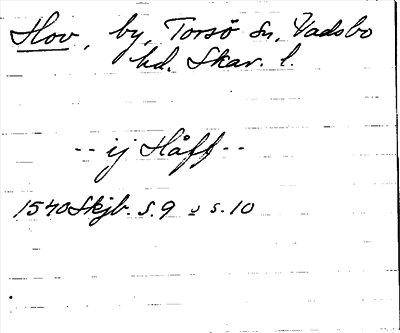 Hov, by, Torsö sn, Vadsbo
hd. Skar. l.
-- ij Håff --
1540 Skjb. S. 9 s. 10